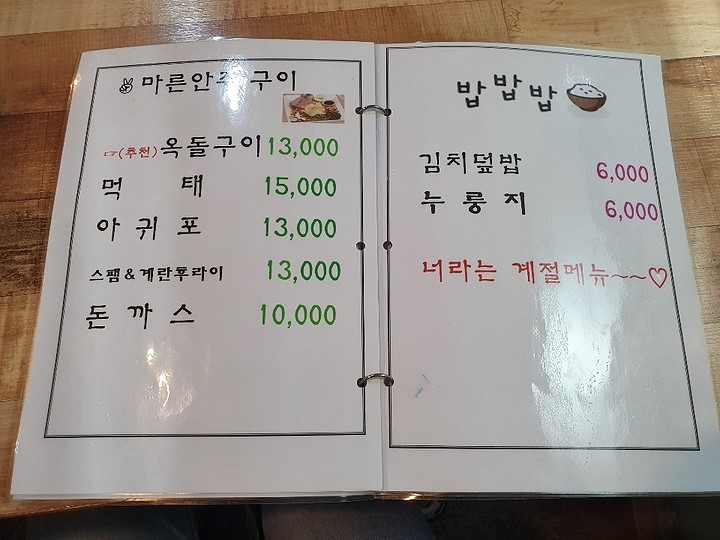 마른안주 구이
☞(추천)옥돌구이 13,000
먹 태 15,000
아 귀 포 13,000
스팸&계란후라이 13,000
돈 까 스 10,000
밥밥밥
김치덮밥 6,000
누 룽 지 6,000
너라는 계절메뉴~~~♡